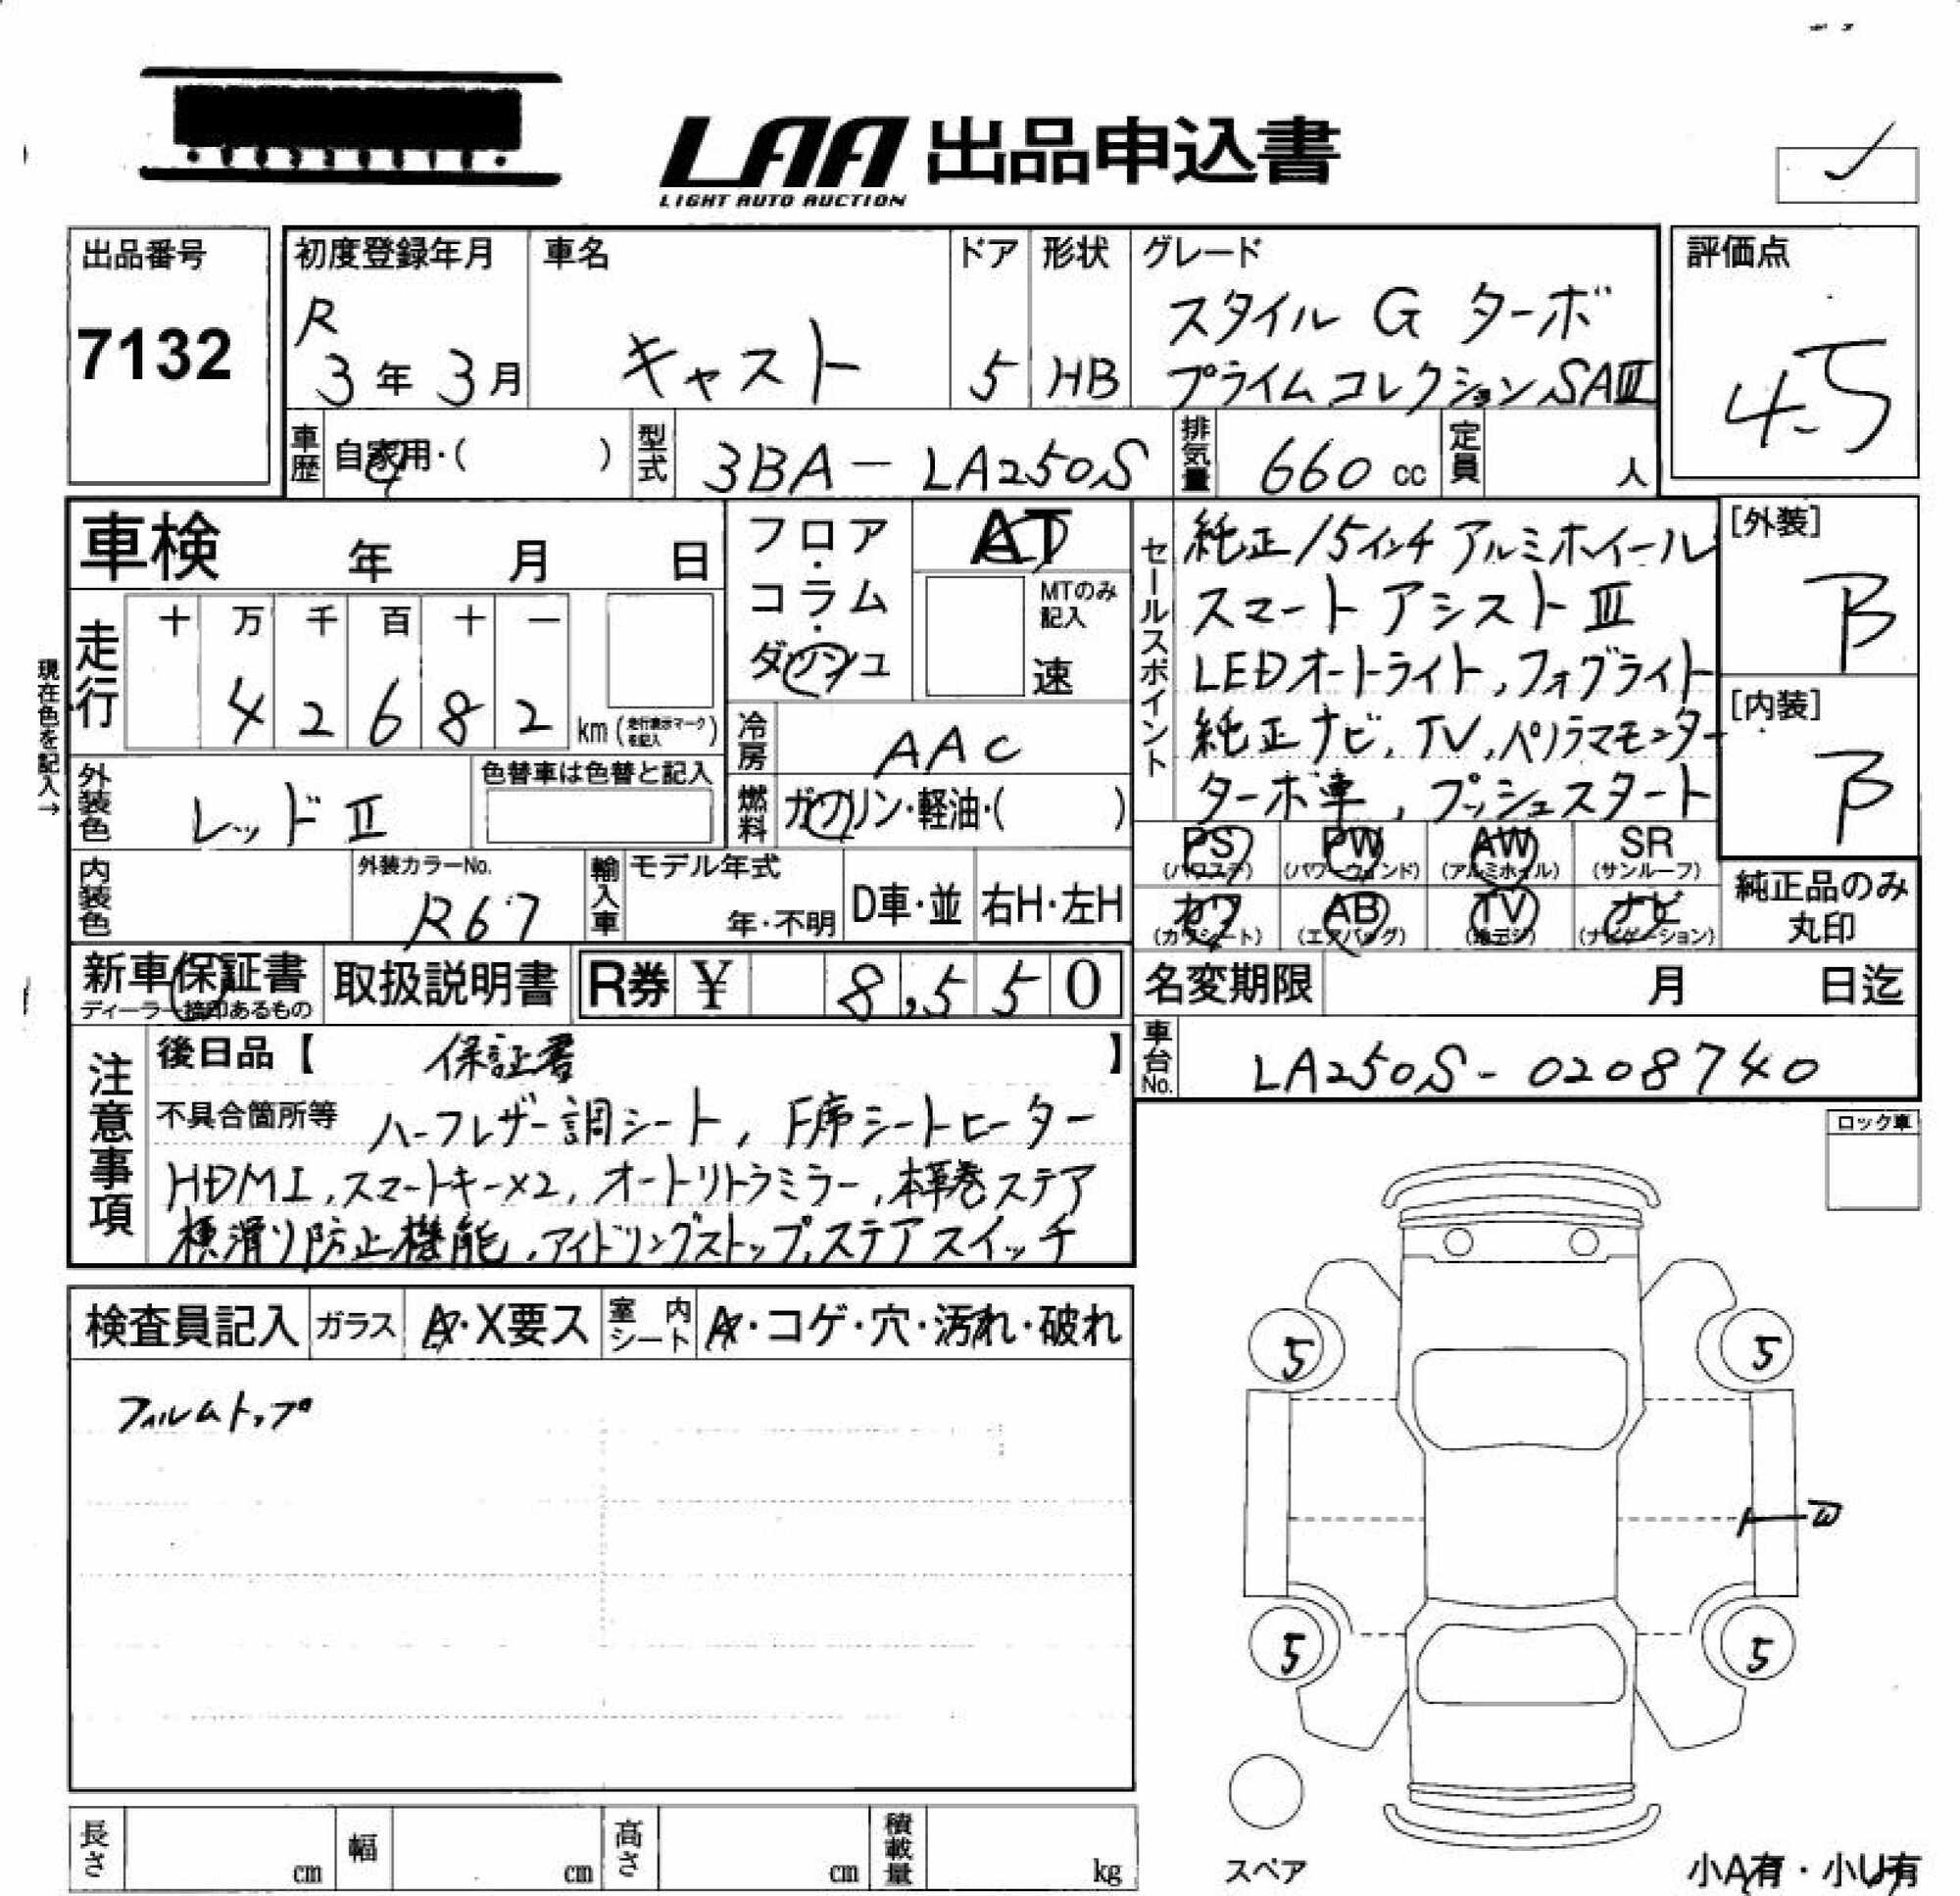 LAA 出品申込書
LIGHT AUTO AUCTION
出品番号
7132
初度登録年月
R
3年 3月
車名
キャスト
ドア
5
形状
HB
グレード
スタイル G ターボ
プライムコレクションSAⅢ
評価点
4.5
車歴
自家用・( )
型式
3BA-LA250S
排気量
660 cc
定員
人
車検 年 月 日
フロア・コラム・ダッシュ
AT
MTのみ記入
速
走行
十 万 千 百 十 一
4 2 6 8 2 km (走行表示マークを記入)
現在色を記入→
冷房
AAC
外装色
レッドⅡ
色替車は色替と記入
燃料
ガソリン・軽油・( )
内装色
外装カラーNo.
R67
輸入車
モデル年式
年・不明
D車・並
右H・左H
セールスポイント
純正15インチアルミホイール
スマートアシストⅢ
LEDオートライト,フォグライト
純正ナビ,TV,パノラマモニター
ターボ車,プッシュスタート
[外装]
B
[内装]
B
PS
(パワステ)
PW
(パワーウィンド)
AW
(アルミホイル)
SR
(サンルーフ)
カワ
(カワシート)
AB
(エアバッグ)
TV
(地デジ)
ナビ
(ナビゲーション)
純正品のみ丸印
新車保証書
ディーラー捺印あるもの
取扱説明書
R券 ¥ 8,550
名変期限 月 日迄
車台No.
LA250S-0208740
注意事項
後日品【 保証書 】
不具合箇所等 ハーフレザー調シート,F席シートヒーター
HDMI,スマートキー×2,オートリトラミラー,本革巻ステア
横滑り防止機能,アイドリングストップ,ステアスイッチ
ロック車
検査員記入
ガラス
A・X要ス
室内シート
A・コゲ・穴・汚れ・破れ
フィルムトップ
5
5
5
5
スペア
小A有・小U有
長さ cm
幅 cm
高さ cm
積載量 kg